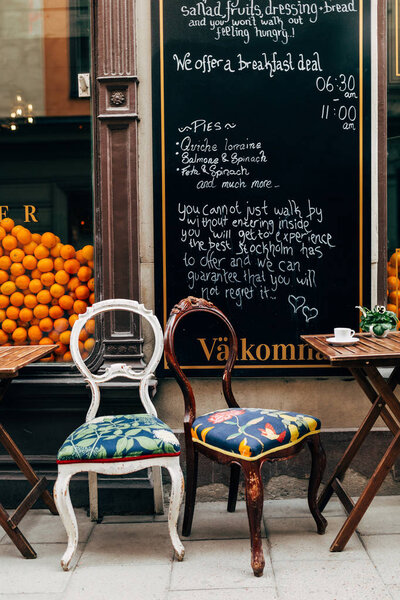 salad, fruits, dressing + bread
and you won't walk out
feeling hungry!
We offer a breakfast deal
06:30
am
11:00
am
~ PIES ~
• Quiche lorraine
• Salmons & Spinach
• Feta & Spinach
and much more...
you cannot just walk by
without entering inside
you will get to experience
the best Stockholm has
to offer and we can
guarantee that you will
not regret it...
Välkomna
ER